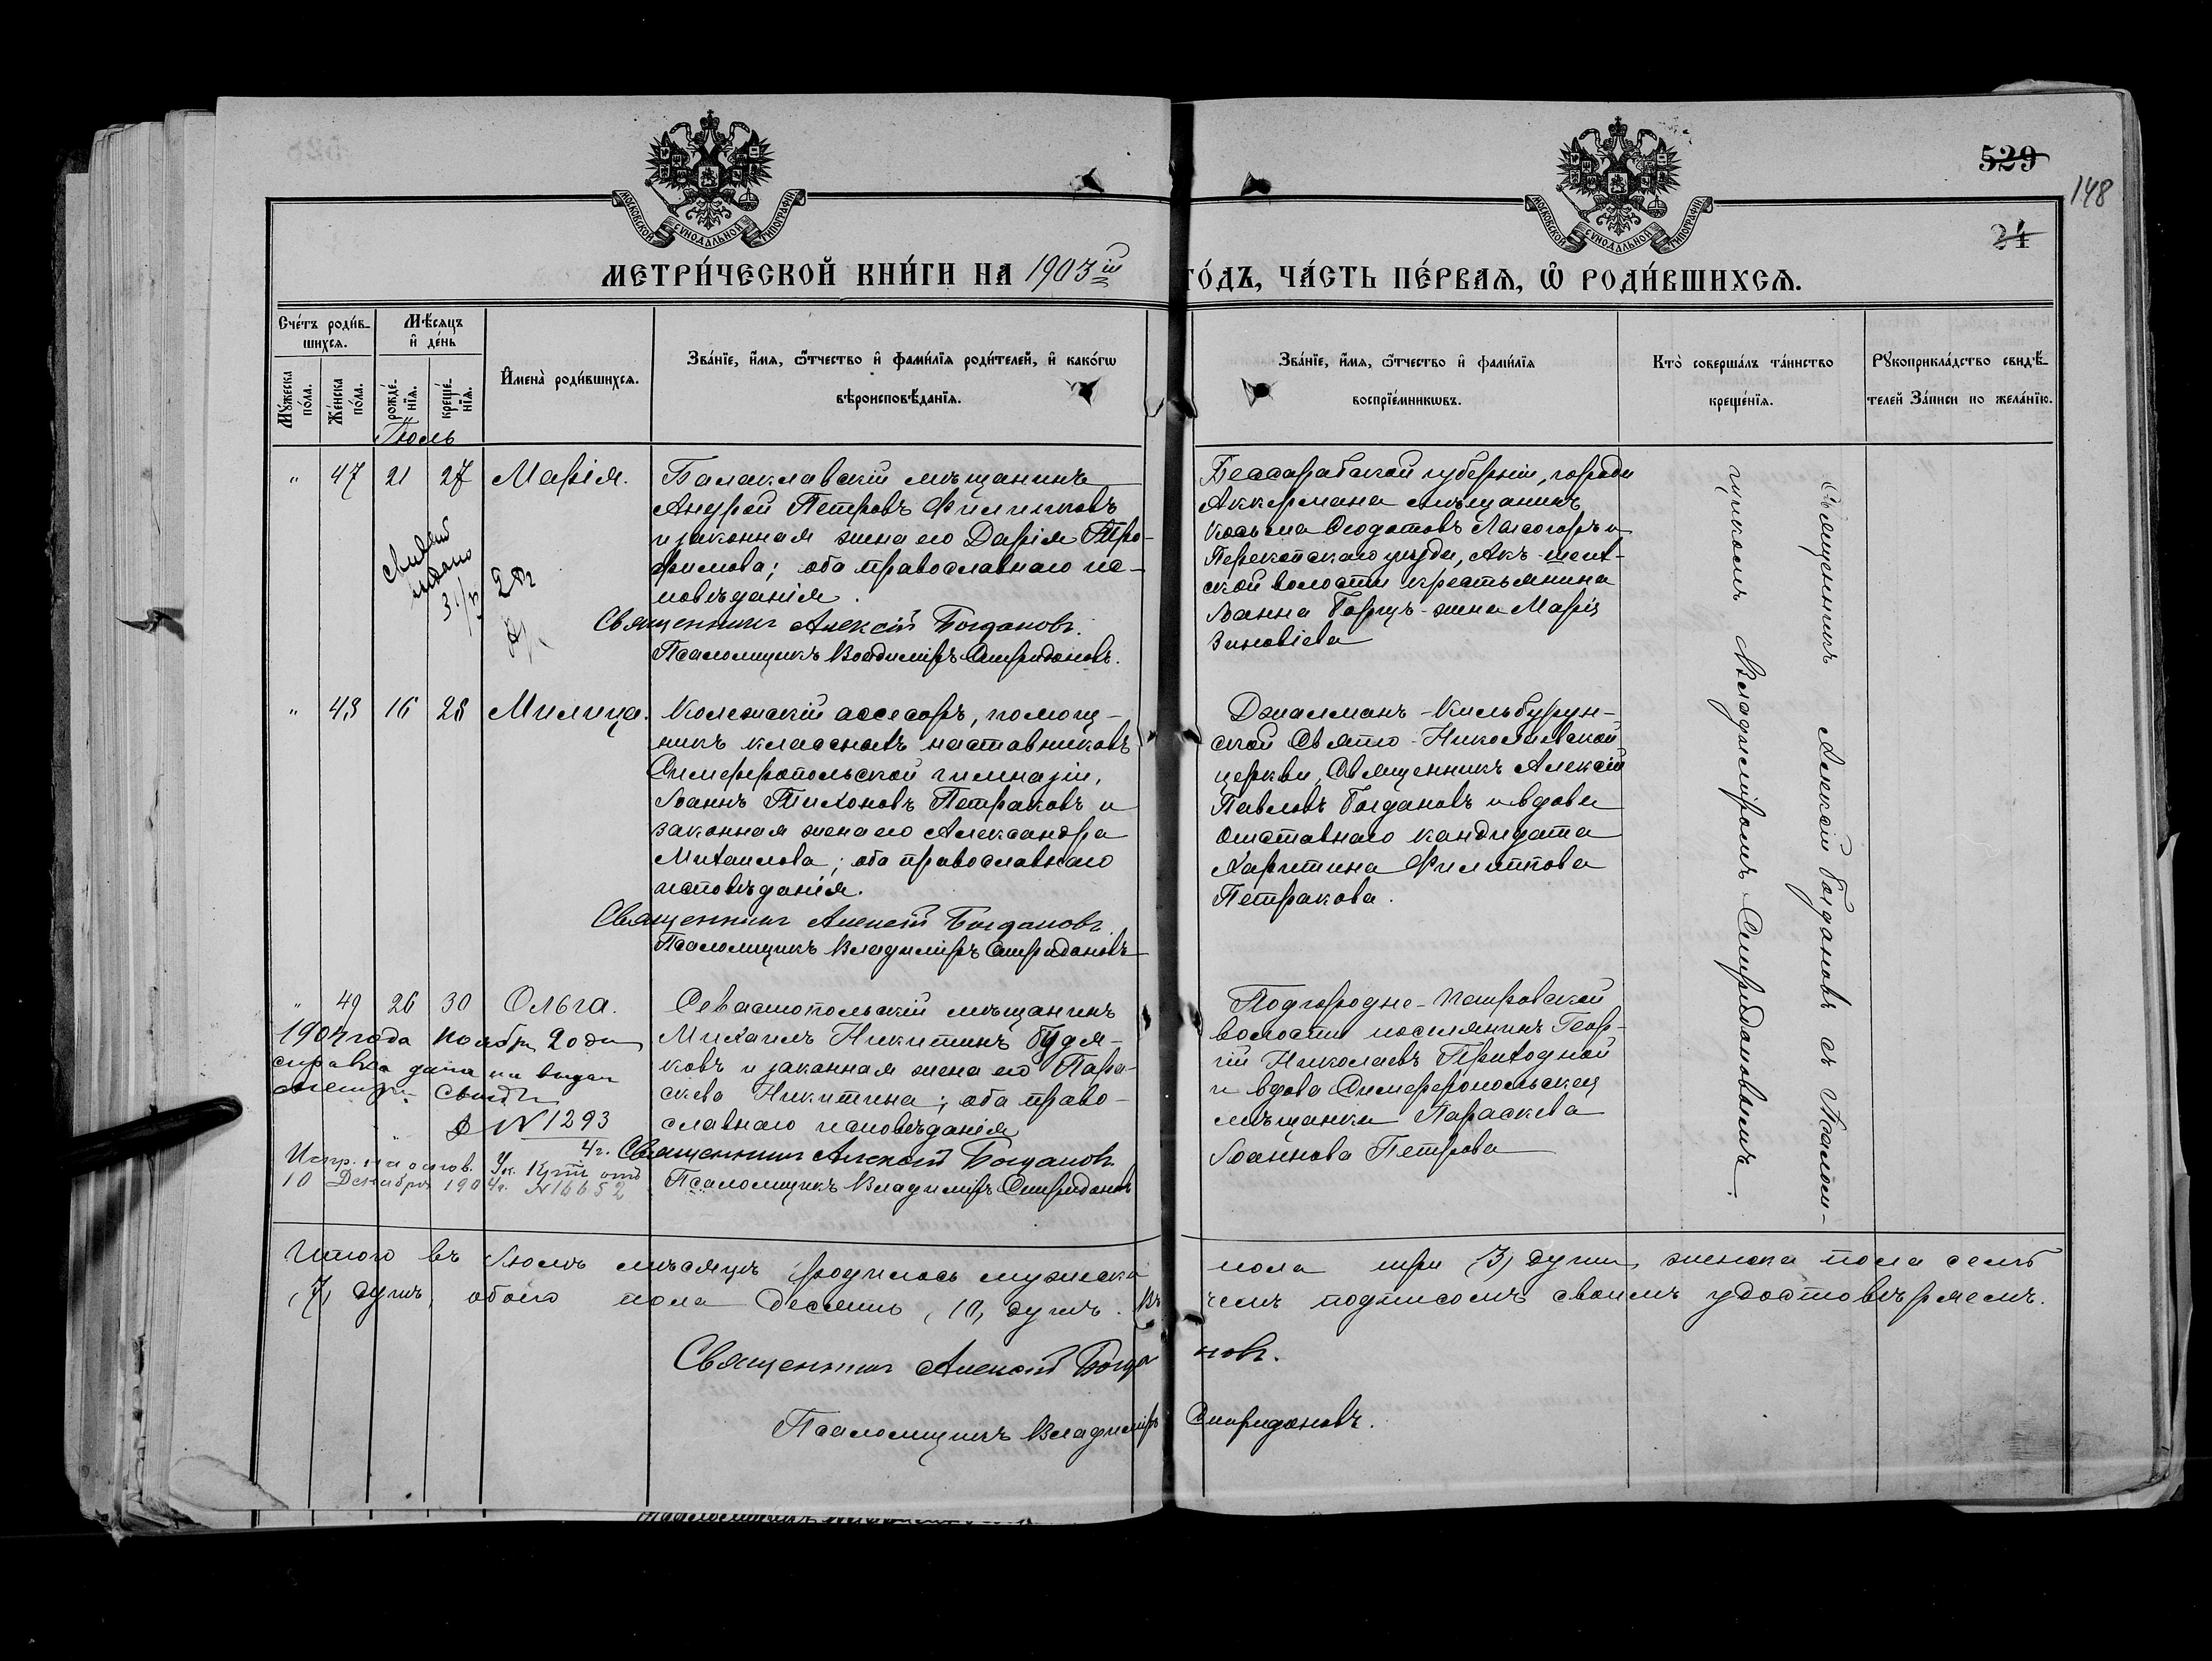 529
148
24
МОСКОВСКОЙ СѴНОДАЛЬНОЙ ТИПОГРАФІИ
МОСКОВСКОЙ СѴНОДАЛЬНОЙ ТИПОГРАФІИ
МЕТРИ́ЧЕСКОЙ КНИ́ГИ НА 1903 й ГО́ДЪ, ЧА́СТЬ ПЕ́РВАѦ, Ѡ҆ РОДИ́ВШИХСѦ.
Сче́тъ роди́в-
шихсѧ.
Мꙋ́жеска по́ла.
Же́нска по́ла.
Мѣ́сѧцъ
и҆ де́нь
рожде́-
нїѧ.
креще́-
нїѧ.
И҆мена̀ роди́вшихсѧ.
Зва́нїе, и҆́мѧ, ѻ҆́тчество и҆ фами́лїѧ роди́телей, и҆ како́гѡ
вѣроисповѣ́данїѧ.
Зва́нїе, и҆́мѧ, ѻ҆́тчество и҆ фами́лїѧ
воспрїе́мникѡвъ.
Кто̀ соверша́лъ та́инство
креще́нїѧ.
Рꙋкоприкла́дство свидѣ́-
телей За́писи по жела́нїю.
Іюль
" 47 21 27 Марія.
Балаклавскій мѣщанинъ
Андрей Петровъ Филипковъ
и законная жена его Дарія Тро-
фимова; оба православнаго ис-
повѣданія.
Священникъ Алексій Богдановъ.
Псаломщикъ Владиміръ Спиридоновъ.
Бессарабской губерніи, города
Аккермана мѣщанинъ
Косьма Ѳеодотовъ Лисогоръ и
Перекопскаго уѣзда, Акъ-шеих-
ской волости крестьянина
Іоанна жена Марія
Зиновіева
" 48 16 28 Милица.
Коллежскій ассесоръ, помощ-
никъ классныхъ наставниковъ
Симферопольской гимназіи,
Іоаннъ Тихоновъ Петраковъ и
законная жена его Александра
Михаилова; оба православнаго
исповѣданія.
Священникъ Алексій Богдановъ.
Псаломщикъ Владиміръ Спиридоновъ
Джалманъ-Кильбурун-
ской Свято-Николаевской
церкви, Священникъ Алексій
Павловъ Богдановъ и вдова
отставнаго кандидата
Харитина Филиппова
Петракова.
" 49 26 30 Ольга.
Севастопольскій мѣщанинъ
Михаилъ Никитинъ Будя-
ковъ и законная жена его Пара-
скева Никитина; оба право-
славнаго исповѣданія
Священникъ Алексій Богдановъ.
Псаломщикъ Владиміръ Спиридоновъ
Подгородне-Петровской
волости поселянинъ Геор-
гій Николаевъ Приходной
и вдова Симферопольская
мѣщанка Параскева
Іоаннова Петрова
1904 года Ноября 20 дня
справка дана на выдач
свид.
№ 1293
Испр. на основ. Ук. Крт отъ
10 Декабря 1904г. № 16652
Священникъ Алексій Богдановъ съ Псалом-
щикомъ Владиміромъ Спиридоновымъ.
Итого въ Іюлѣ мѣсяцѣ родилось мужска пола три (3) души, женска пола семь
(7) душъ, обоего пола десять (10) душъ. Въ чемъ подписомъ своимъ удостовѣряемъ.
Священникъ Алексій Богдановъ.
Псаломщикъ Владиміръ Спиридоновъ.